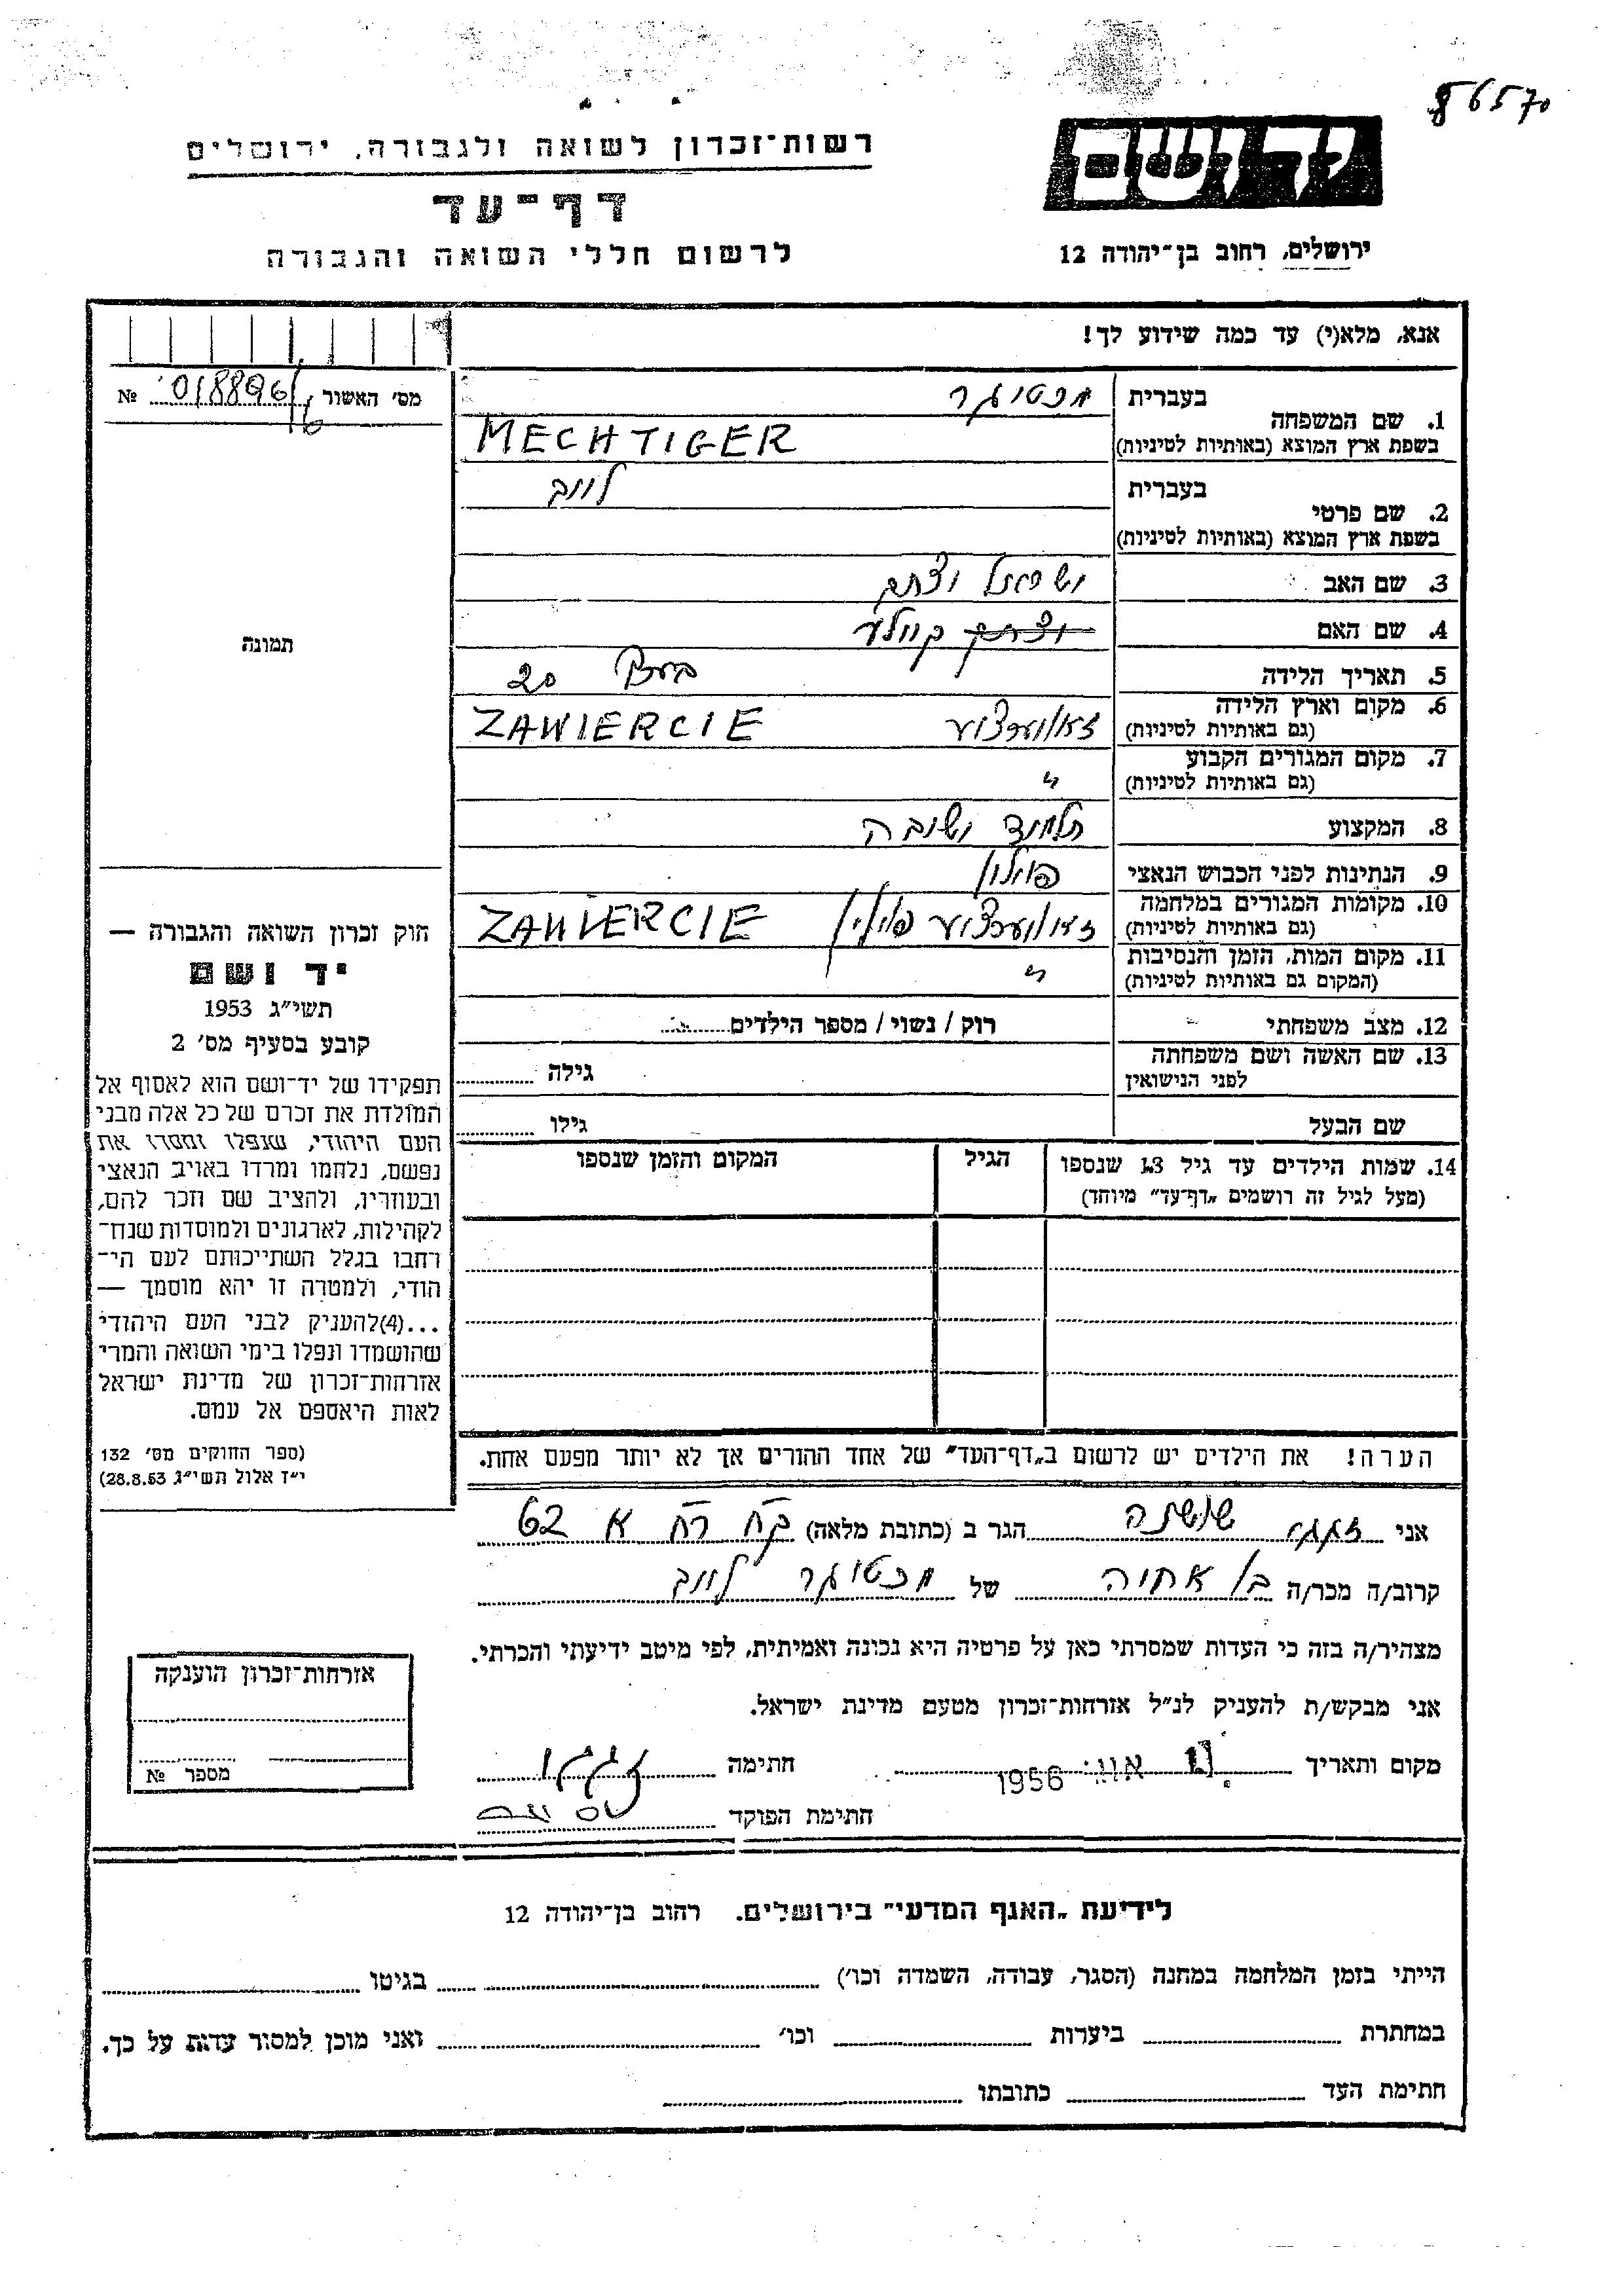 86570
רשות־זכרון לשואה ולגבורה, ירושלים
דף־עד
לרשום חללי השואה והגבורה
יד ושם
ירושלים, רחוב בן־יהודה 12
אנא, מלא(י) עד כמה שידוע לך!
מס' האשור № 018896/16
1. שם המשפחה בעברית מכטיגר
בשפת ארץ המוצא (באותיות לטיניות) MECHTIGER
2. שם פרטי בעברית לייב
בשפת ארץ המוצא (באותיות לטיניות)
3. שם האב ישראל יצחק
4. שם האם יצחק קיילע
5. תאריך הלידה בערך 20
6. מקום וארץ הלידה (גם באותיות לטיניות) ZAWIERCIE
7. מקום המגורים הקבוע (גם באותיות לטיניות) "
8. המקצוע תלמיד ישיבה
9. הנתינות לפני הכבוש הנאצי פולין
10. מקומות המגורים במלחמה (גם באותיות לטיניות) פולין ZAWIERCIE
11. מקום המות, הזמן והנסיבות (המקום גם באותיות לטיניות) "
12. מצב משפחתי רווק / נשוי / מספר הילדים
13. שם האשה ושם משפחתה לפני הנישואין גילה
שם הבעל גילו
14. שמות הילדים עד גיל 13 שנספו הגיל המקום והזמן שנספו
(מעל לגיל זה רושמים „דף־עד” מיוחד)
הערה! את הילדים יש לרשום ב„דף־העד” של אחד ההורים אך לא יותר מפעם אחת.
תמונה
חוק זכרון השואה והגבורה —
יד ושם
תשי"ג 1953
קובע בסעיף מס' 2
תפקידו של יד־ושם הוא לאסוף אל
המולדת את זכרם של כל אלה מבני
העם היהודי, שנפלו ומסרו את
נפשם, נלחמו ומרדו באויב הנאצי
ובעוזריו, ולהציב שם וזכר להם,
לקהילות, לארגונים ולמוסדות שנח־
רבו בגלל השתייכותם לעם הי־
הודי, ולמטרה זו יהא מוסמך —
...(4)להעניק לבני העם היהודי
שהושמדו ונפלו בימי השואה והמרי
אזרחות־זכרון של מדינת ישראל
לאות היאספם אל עמם.
(ספר החוקים מס' 132
י"ז אלול תשי"ג 28.8.53)
אני שושנה הגר ב (כתובת מלאה) א 62
קרוב/ה מכר/ה בן אחיה של מכטיגר לייב
מצהיר/ה בזה כי העדות שמסרתי כאן על פרטיה היא נכונה ואמיתית, לפי מיטב ידיעתי והכרתי.
אני מבקש/ת להעניק לנ"ל אזרחות־זכרון מטעם מדינת ישראל.
מקום ותאריך 1956 חתימה
חתימת הפוקד
אזרחות־זכרון הוענקה
מספר №
לידיעת „האגף המדעי” בירושלים. רחוב בן־יהודה 12
הייתי בזמן המלחמה במחנה (הסגר, עבודה, השמדה וכו') בגיטו
במחתרת ביערות וכו' ואני מוכן למסור עדות על כך.
חתימת העד כתובתו